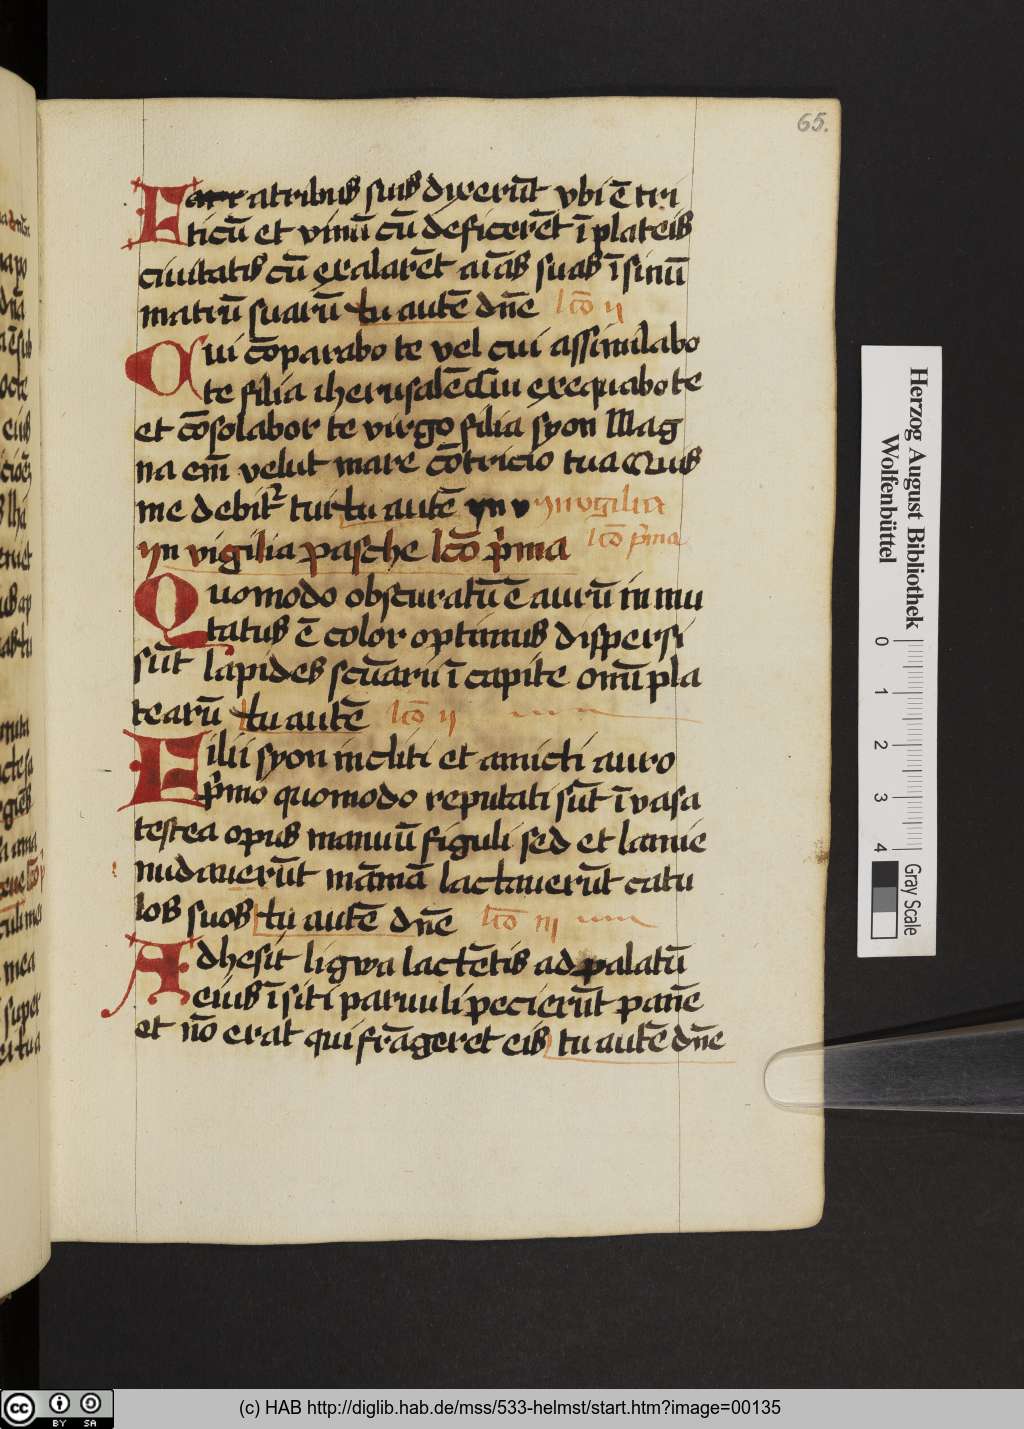 65.
E atribus suis dixerūt vbi ē tri
ticū et vinū cū deficerēt ī plateis
ciuitatis cū exalarēt aīas suas ī sinū
matrū suarū tu autē dn̄e lcō ij
Qui cōparabo te vel cui assimilabo
te filia iherusalē Cui exequabo te
et cōsolabor te virgo filia syon Mag
na em̄ velut mare cōtricio tua Quis
me debit᷑ tui tu autē yn v yn vigilia
lcō p̄ma
yn vigilia pasche lcō p̄ma
Quomodo obscuratū ē aurū in mu
tatus ē color optimus dispersi
sūt lapides scūarū ī capite omū pla
tearū tu autē lcō ij
Filii syon incliti et amicti auro
p̄mo quomodo reputati sūt ī vasa
testea opus manuū figuli sed et lamie
nudauerūt māmā lactauerūt catu
los suos tu autē dn̄e lcō iij
Adhesit ligwa lactētis ad palatū
eius ī siti paruuli pecierūt panē
et nō erat qui frāgeret eis tu autē dn̄e
Herzog August Bibliothek
Wolfenbüttel
0 1 2 3 4
Gray Scale
cc BY SA
(c) HAB http://diglib.hab.de/mss/533-helmst/start.htm?image=00135